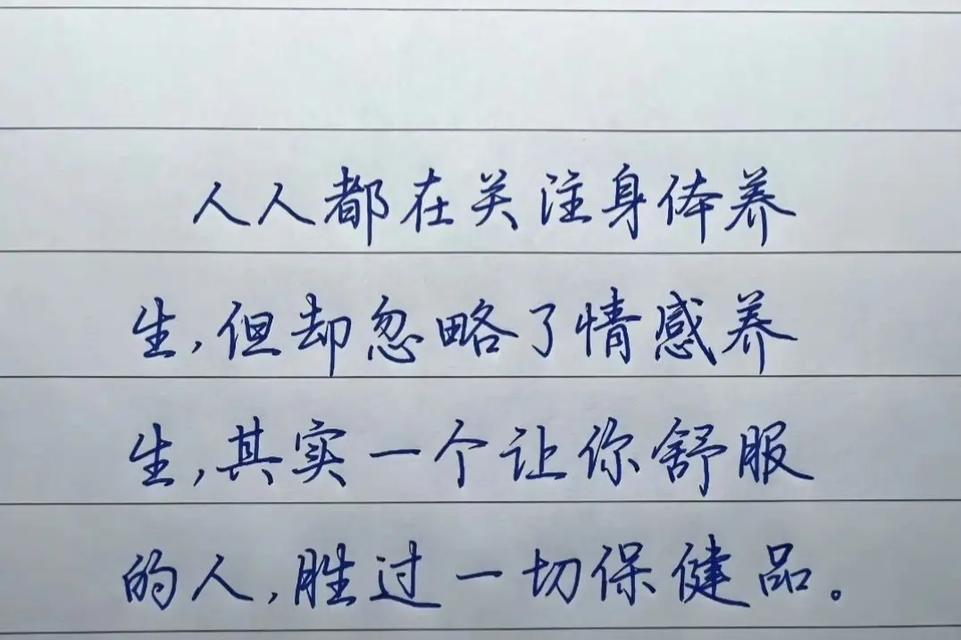 人人都在关注身体养
生,但却忽略了情感养
生,其实一个让你舒服
的人,胜过一切保健品。